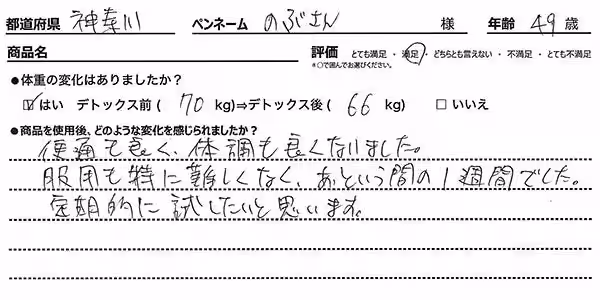 都道府県 神奈川 ペンネーム のぶさん 様 年齢 49 歳
商品名 評価 とても満足 ・ 満足 ・ どちらとも言えない ・ 不満足 ・ とても不満足
※○で囲んでお選びください。
●体重の変化はありましたか？
☑はい デトックス前 ( 70 kg)⇒デトックス後 ( 66 kg) □いいえ
●商品を使用後、どのような変化を感じられましたか？
便通も良く、体調も良くなりました。
服用も特に難しくなく、あという間の1週間でした。
定期的に試したいと思います。